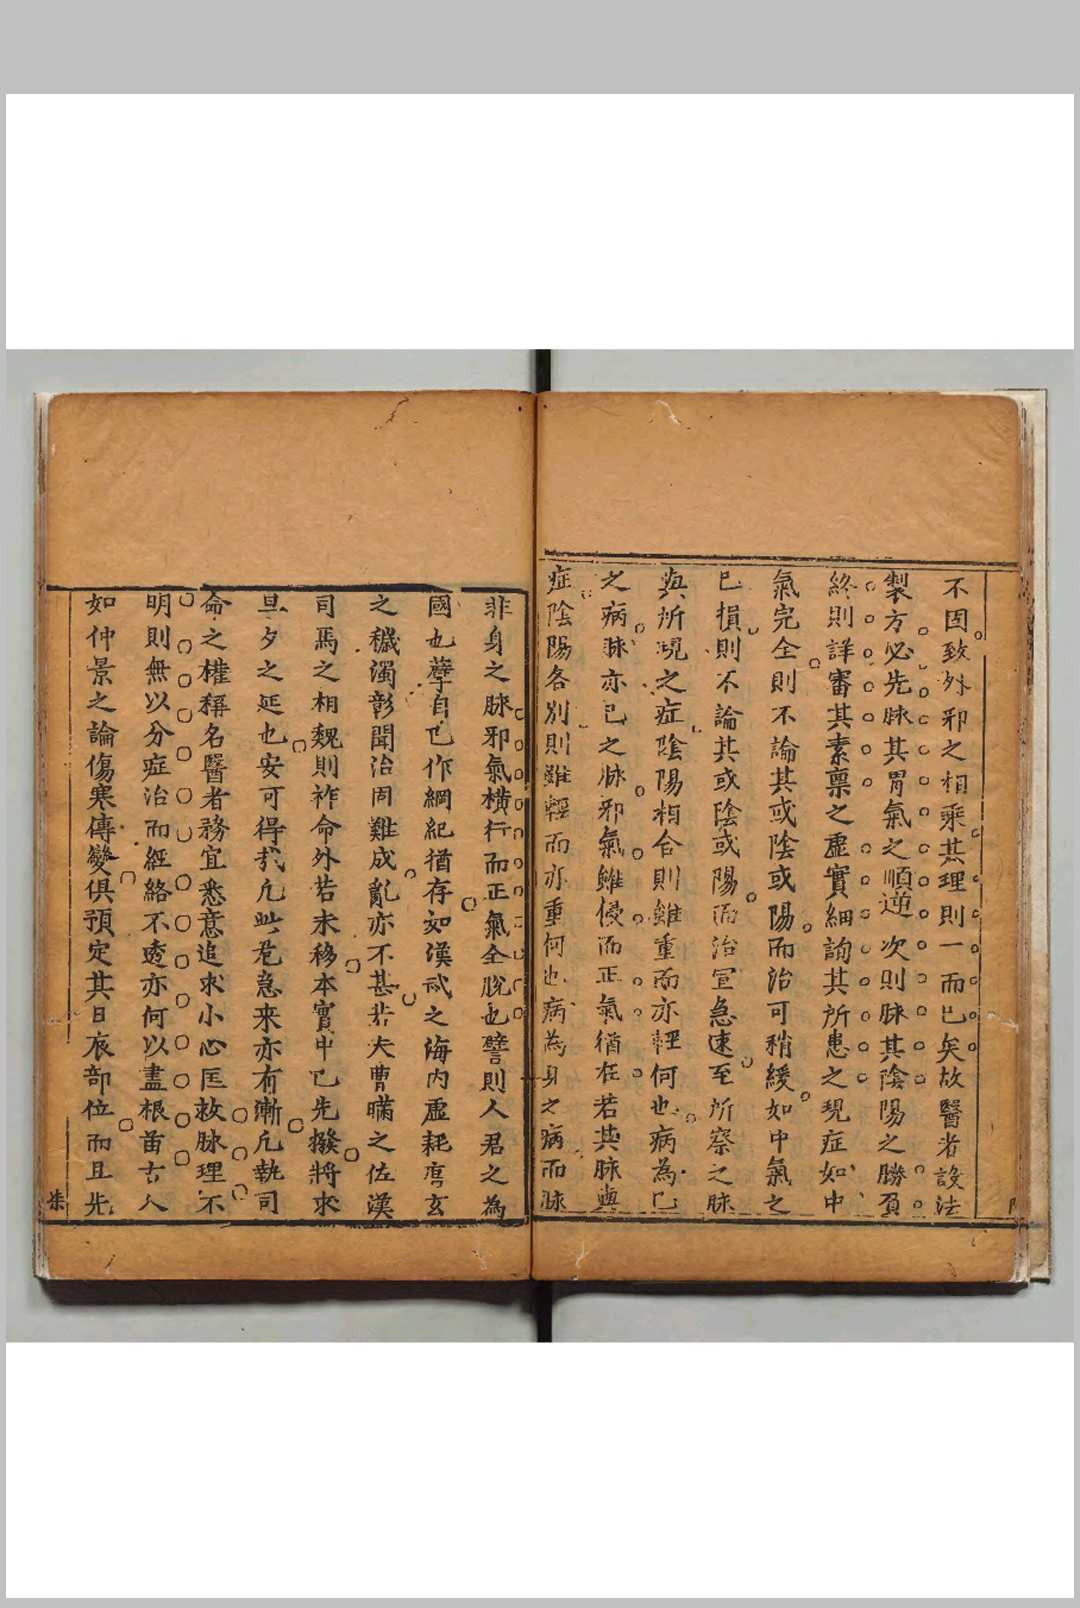 不因致外邪之相乘其理則一而已矣故醫者設法
製方必先脉其胃氣之順逆次則脉其陰陽之勝負
終則詳審其素禀之虛實細詢其所患之現症如中
氣完全則不論其或陰或陽而治可稍緩如中氣之
已損則不論其或陰或陽而治宜急速至所察之脉
與所現之症陰陽相合則雖重而亦輕何也病為已
之病脉亦已之脉邪氣雖侵而正氣猶在若其脉與
症陰陽各別則雖輕而亦重何也病為身之病而脉
非身之脉邪氣橫行而正氣全脫也譬則人君之為
國也孽自已作綱紀猶存如漢武之海內虛耗唐玄
之穢濁彰聞治固難成亂亦不甚若夫曹瞞之佐漢
司馬之相魏則祚命外若未移本實中已先撥將求
旦夕之延也安可得哉凡此危急来亦有漸凡執司
命之權稱名醫者務宜悉意追求小心匡救脉理不
明則無以分症治而經絡不透亦何以盡根苗古人
如仲景之論傷寒傳變俱預定其日辰部位而且先